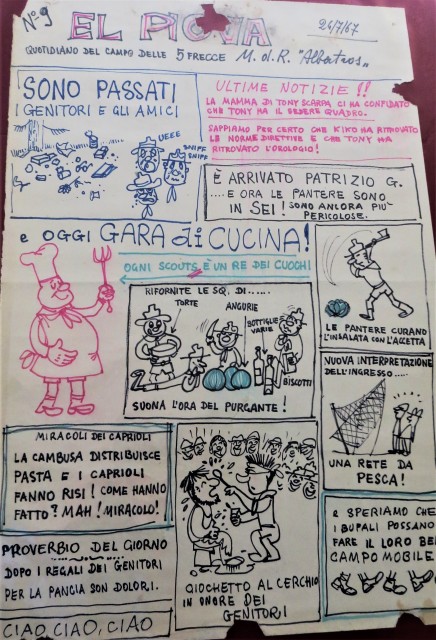 N° 9
EL PIOVA
24/7/67
QUOTIDIANO DEL CAMPO DELLE 5 FRECCE M. d. R. "Albatros"
SONO PASSATI
I GENITORI E GLI AMICI
UEEE
SNIFF
SNIFF
ULTIME NOTIZIE !!
LA MAMMA DI TONY SCARPA CI HA CONFIDATO
CHE TONY HA IL SEDERE QUADRO.
SAPPIAMO PER CERTO CHE KIKO HA RITROVATO
LE NORME DIRETTIVE E CHE TONY HA
RITROVATO L'OROLOGIO!
È ARRIVATO PATRIZIO G.
....E ORA LE PANTERE SONO
IN SEI! SONO ANCORA PIU'
PERICOLOSE.
e OGGI GARA di CUCINA!
OGNI SCOUTS È UN RE DEI CUOCHI
RIFORNITE LE SQ. DI......
TORTE
ANGURIE
BOTTIGLIE
VARIE
BISCOTTI
SUONA L'ORA DEL PURGANTE!
LE PANTERE CURANO
L'INSALATA CON L'ACCETTA
NUOVA INTERPRETAZIONE
DELL'INGRESSO.....
UNA RETE DA
PESCA!
MIRACOLI DEI CAPRIOLI
LA CAMBUSA DISTRIBUISCE
PASTA E I CAPRIOLI
FANNO RISI! COME HANNO
FATTO? MAH! MIRACOLO!
PROVERBIO DEL GIORNO
DOPO I REGALI DEI GENITORI
PER LA PANCIA SON DOLORI.
CIAO, CIAO, CIAO
GIOCHETTO AL CERCHIO
IN ONORE DEI
GENITORI
e SPERIAMO CHE
I BUFALI POSSANO
FARE IL LORO BEL
CAMPO MOBILE